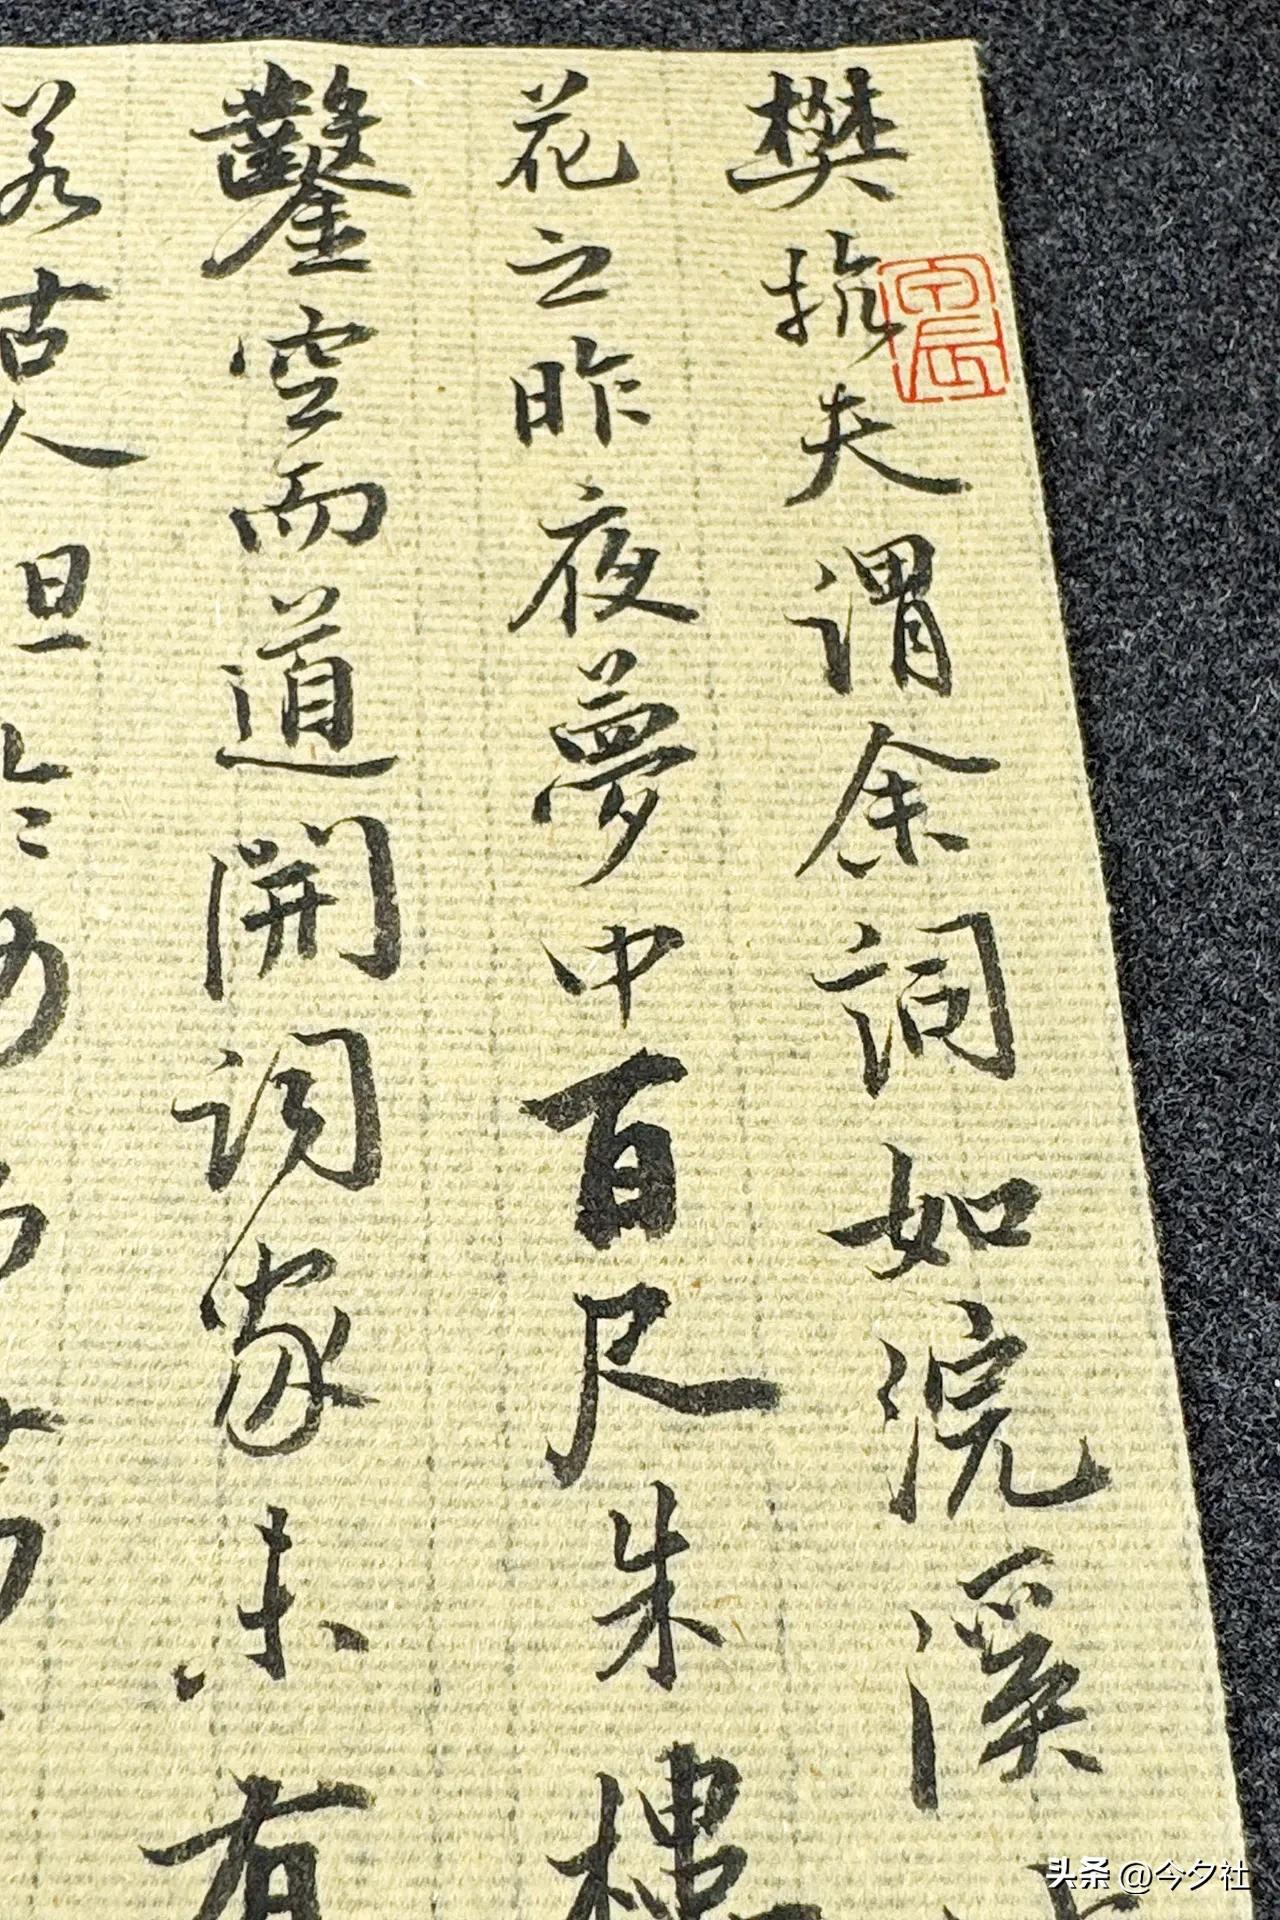 樊抗夫謂余詞如浣溪
花之昨夜夢中百尺朱樓
鑿空而道開詞家未有
若古人
头条 @今夕社